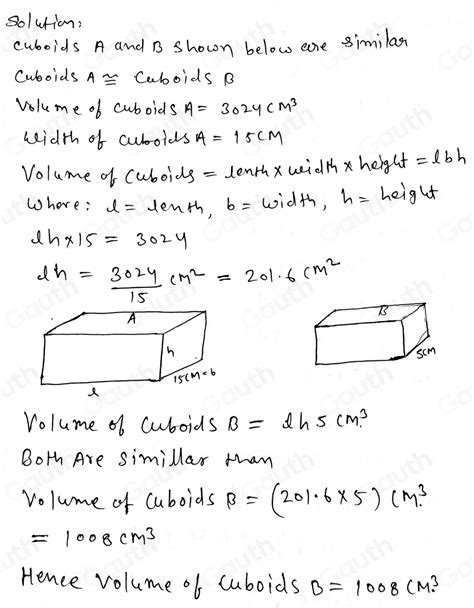 Solution:
Cuboids A and B shown below are similar
Cuboids A ≅ Cuboids B
Volume of cuboids A = 3024 cm³
Width of cuboids A = 15cm
Volume of cuboids = lenth × width × height = lbh
Where: l = lenth, b = width, h = height
lh×15 = 3024
lh = 3024/15 cm² = 201.6 cm²
A
B
h
15cm=b
5cm
l
Volume of cuboids B = lh5 cm³
Both Are Simillar than
Volume of cuboids B = (201.6×5) cm³
= 1008 cm³
Hence Volume of cuboids B = 1008 cm³